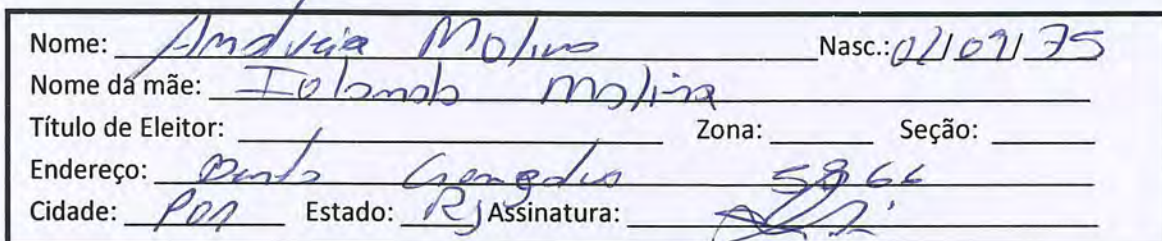 Nome: Andreia Molina Nasc.: 02/09/75
Nome da mãe: Iolanda Molina
Título de Eleitor: Zona: Seção:
Endereço: Bento Gonçalves
Cidade: POA Estado: RS Assinatura: